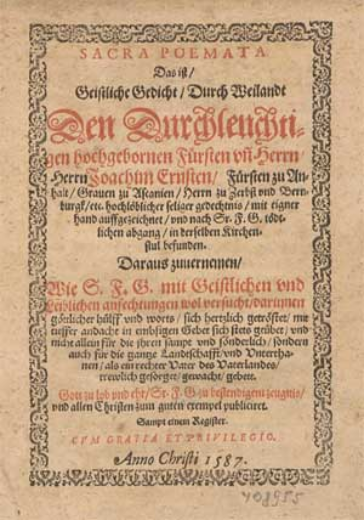 SACRA POEMATA
Das ist/
Geistliche Gedicht/ Durch Weilandt
Den Durchleuchti-
gen hochgebornen Fürsten vñ Herrn/
Herrn Joachim Ernsten/ Fürsten zu An-
halt/ Grauen zu Ascanien/ Herrn zu Zerbst vnd Bern-
burgk/ etc. hochlöblicher seliger gedechtnis/ mit eigner
hand auffgezeichnet/ vnd nach Sr. F. G. tödt-
lichen abgang/ in derselben Kirchen-
stul befunden.
Daraus zuuernemen/
Wie S. F. G. mit Geistlichen vnd
Leiblichen anfechtungen wol versucht/ darinnen
göttlicher hülff vnd worts/ sich hertzlich getröstet/ mit
tieffer andacht in embsigen Gebet sich stets geübet/ vnd
nicht allein für die jhren sampt vnd sonderlich/ sondern
auch für die gantze Landtschafft/ vnd Vnterthan-
nen/ als ein rechter Vater des Vaterlandes/
trewlich gesorget/ gewacht/ gebett.
Gott zu lob vnd ehr/ Sr. F. G. zu bestendigem zeugnis/
vnd allen Christen zum guten exempel publiciret.
Sampt einem Register.
CVM GRATIA ET PRIVILEGIO.
Anno Christi 1587.
408955